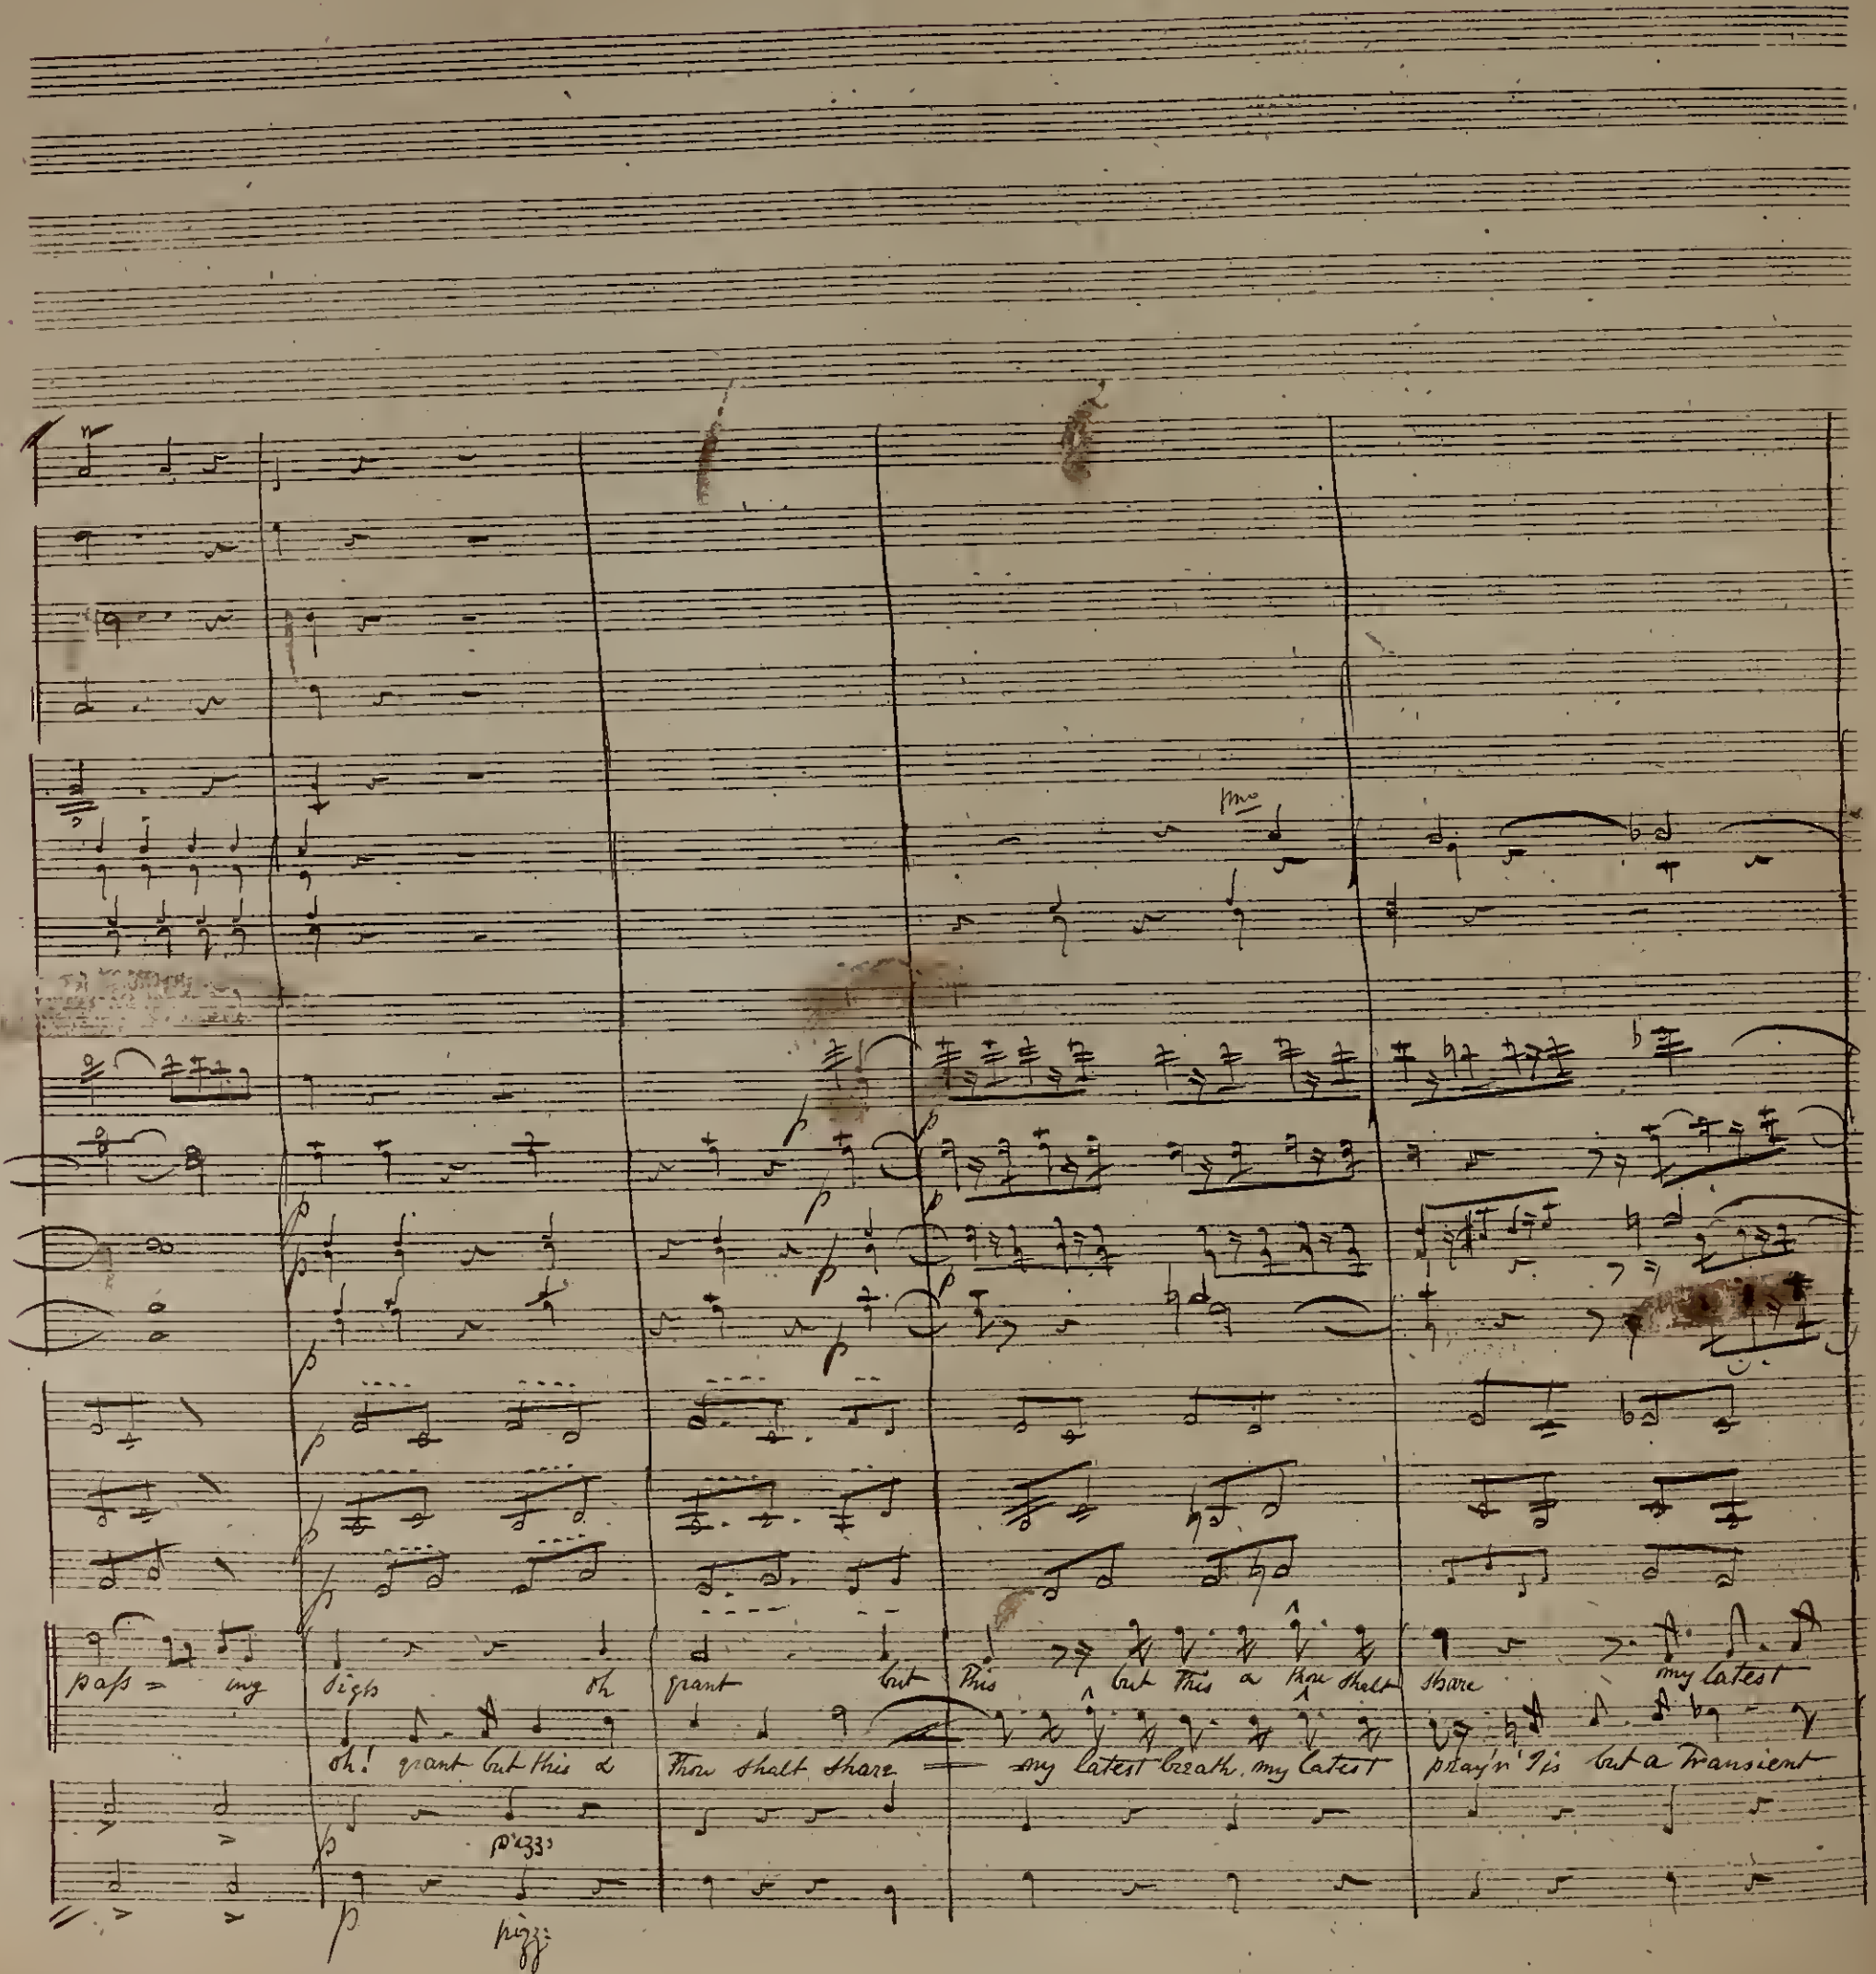 pmo
p p
p p p
p p p
p p
p
p
p
paſs = ing sigh oh grant but this but this & thou shalt share my latest
oh! grant but this & thou shalt share = my latest breath, my latest pray'r 'Tis but a transient
p pizz:
p pizz: